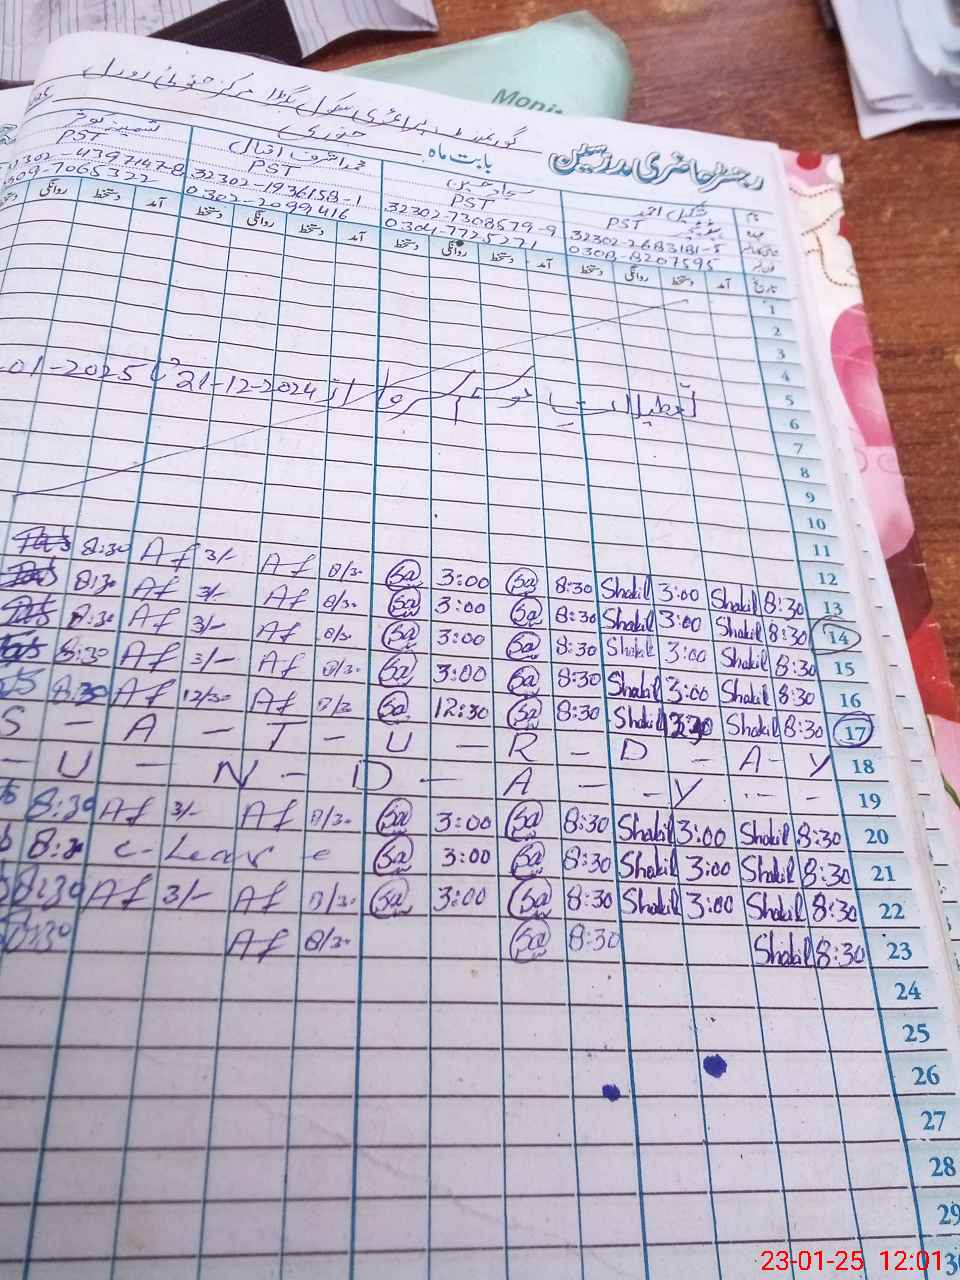 Monit
گورنمنٹ پرائمری سکول
رجسٹر حاضری مدرسین بابت ماہ جنوری
نام شکیل احمد سجاد حسین محمد اشرف اقبال
عہدہ PST PST PST PST
32302-2683181-5 32302-7308579-9 32302-1936158-1 0302-4397147-8
0308-8207595 0304-7725271 0302-2099416 309-7065322
تاریخ آمد دستخط روانگی دستخط آمد دستخط روانگی دستخط آمد دستخط روانگی دستخط آمد دستخط روانگی
1
2
3
4
5
تعطیلات موسم سرما از 21-12-2024 تا 01-2025
6
7
8
9
10
11
12
8:30 Af 3/- Af 8/30 Sa 3:00 Sa 8:30 Shakil 3:00 Shakil 8:30 13
8:30 Af 3/- Af 8/30 Sa 3:00 Sa 8:30 Shakil 3:00 Shakil 8:30 14
8:30 Af 3/- Af 8/30 Sa 3:00 Sa 8:30 Shakil 3:00 Shakil 8:30 15
8:30 Af 3/- Af 8/30 Sa 3:00 Sa 8:30 Shakil 3:00 Shakil 8:30 16
8:30 Af 12/30 Af 8/30 Sa 12:30 Sa 8:30 Shakil Shakil 8:30 17
S - A - T - U - R - D - A - Y 18
- U - N - D - A - - Y - - - 19
8:30 Af 3/- Af 8/30 Sa 3:00 Sa 8:30 Shakil 3:00 Shakil 8:30 20
8:30 C-Leave Sa 3:00 Sa 8:30 Shakil 3:00 Shakil 8:30 21
8:30 Af 3/- Af 8/30 Sa 3:00 Sa 8:30 Shakil 3:00 Shakil 8:30 22
8:30 Af 8/30 Sa 8:30 Shakil 8:30 23
24
25
26
27
28
29
30
23-01-25 12:01